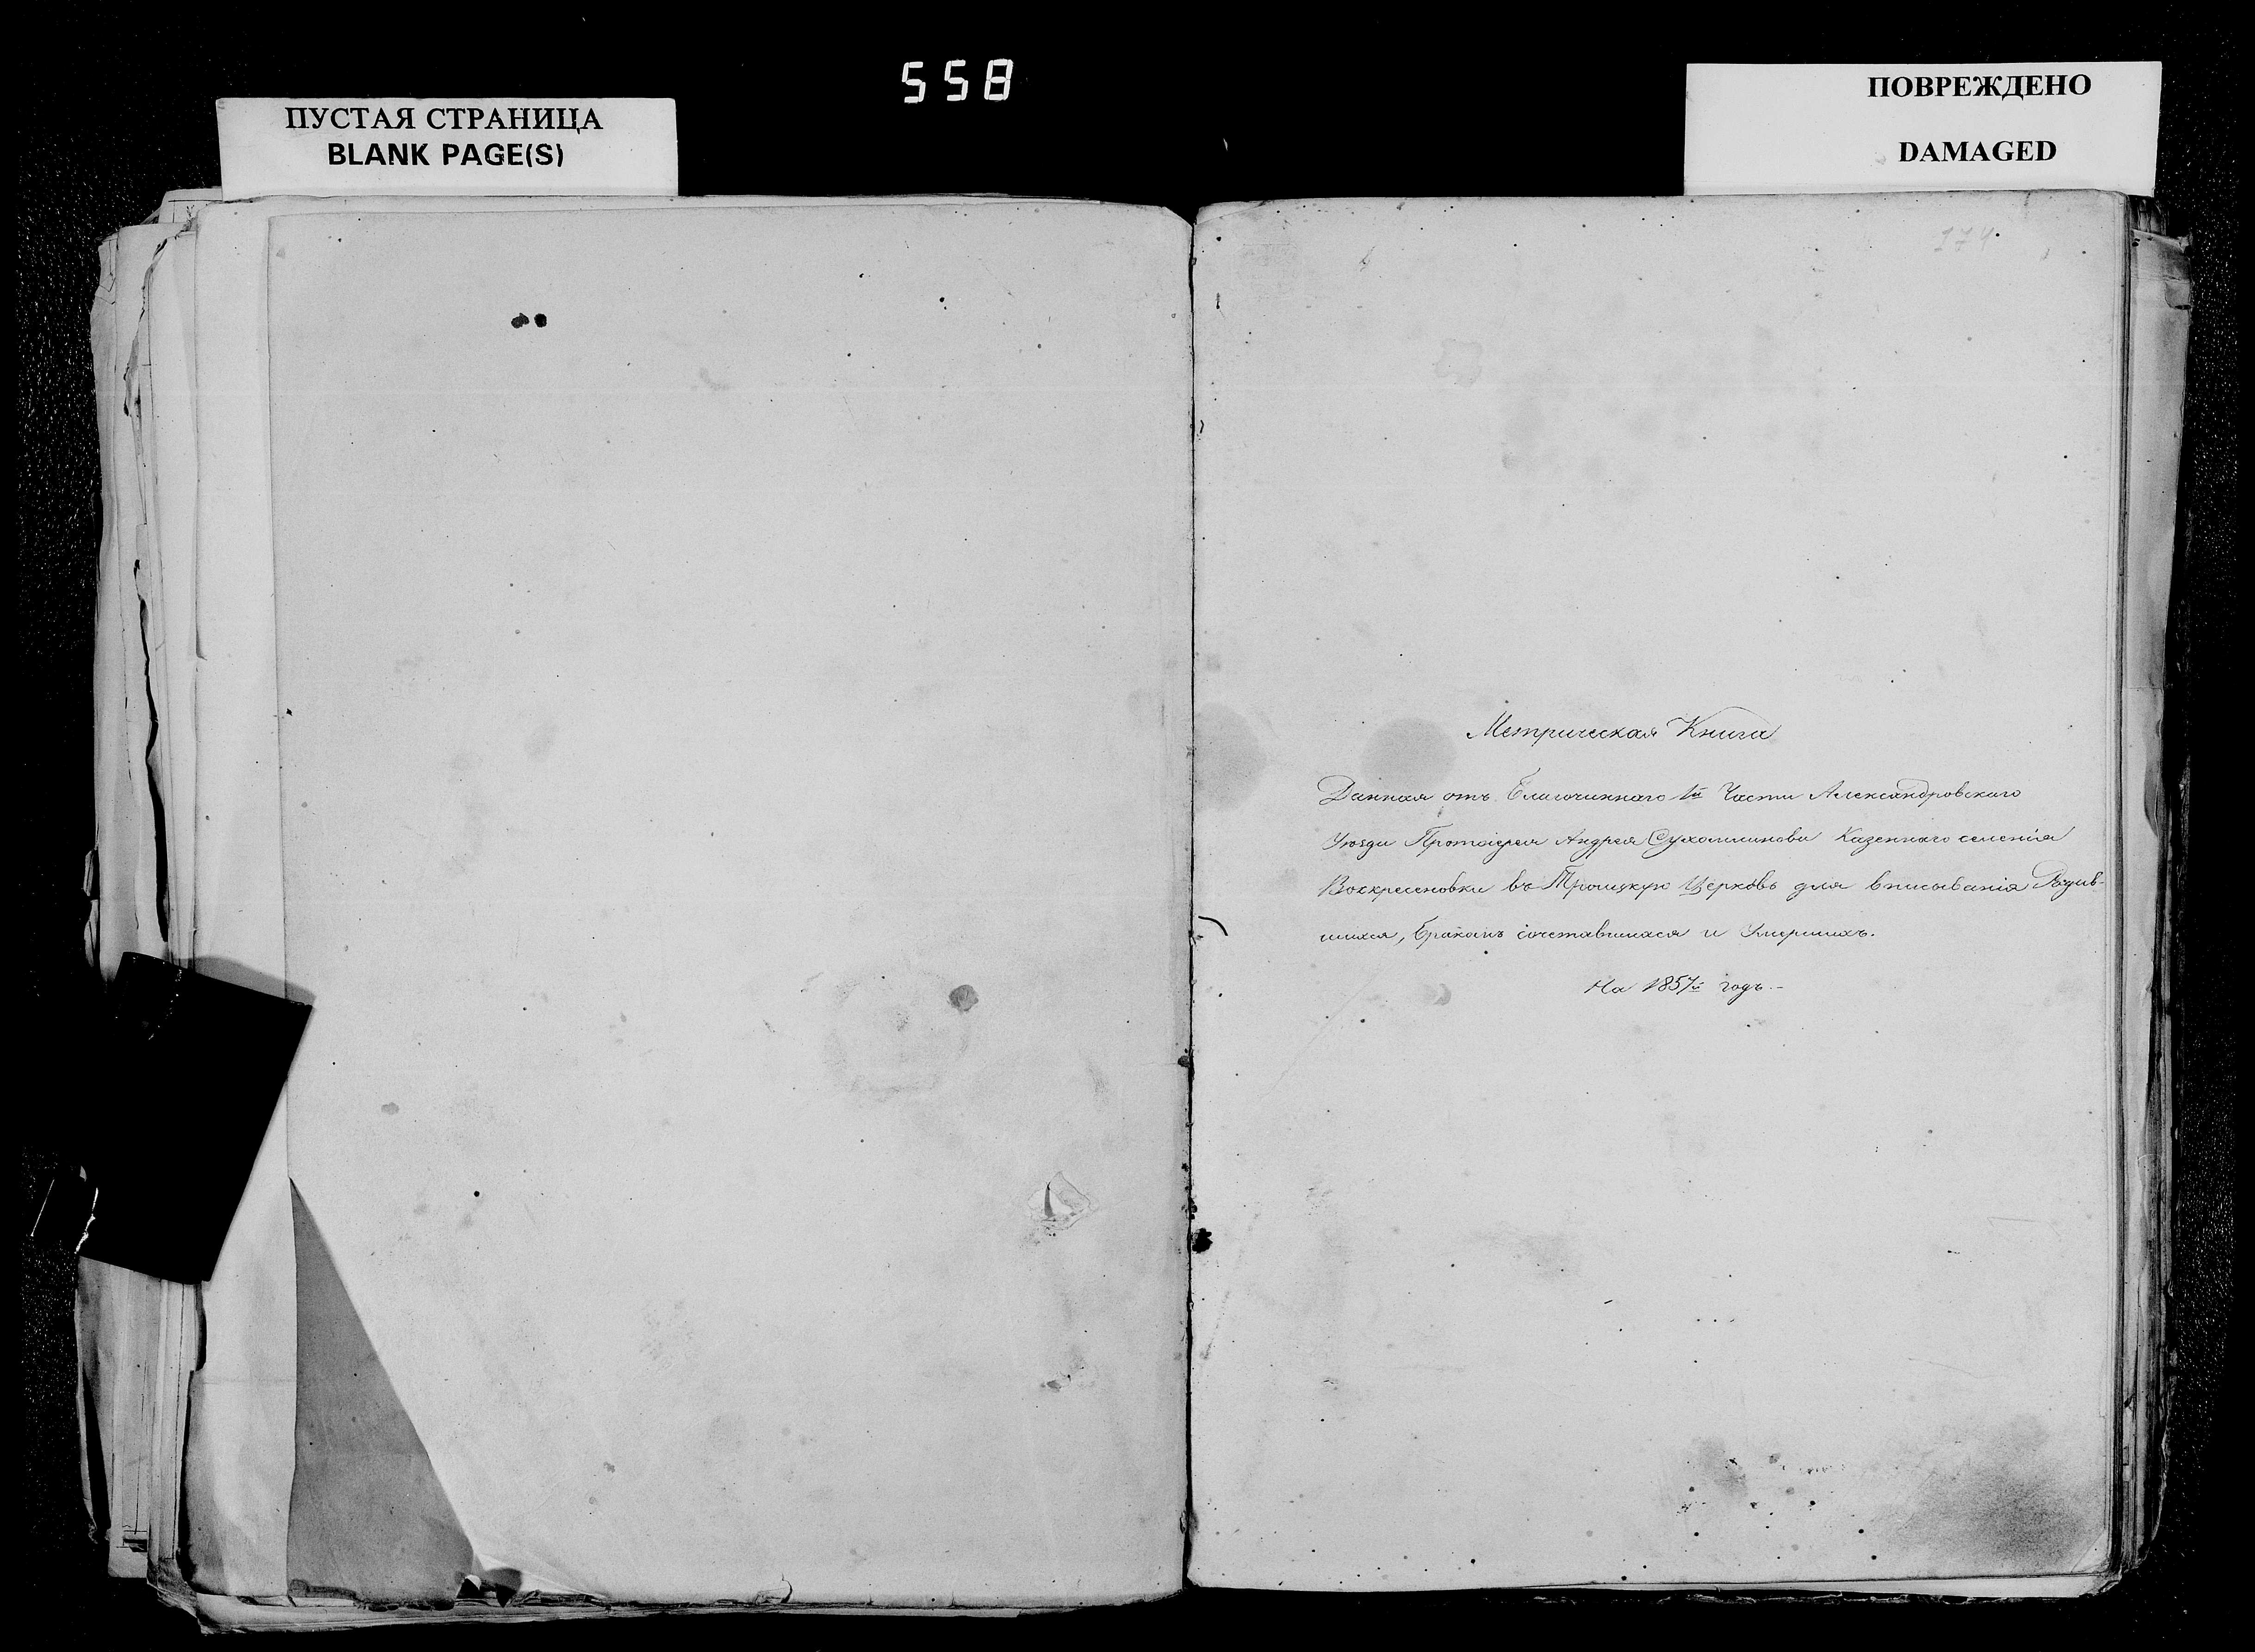 558
ПУСТАЯ СТРАНИЦА
BLANK PAGE(S)
ПОВРЕЖДЕНО
DAMAGED
174
Метрическая Книга
Данная отъ Благочиннаго 1й Части Александровскаго
Уѣзда Протоіерея Андрея Сухомлинова Казеннаго селенія
Воскресеновки въ Троицкую Церковь для вписыванія Родив-
шихся, Бракомъ сочетавшихся и Умершихъ.
На 1857й годъ.-